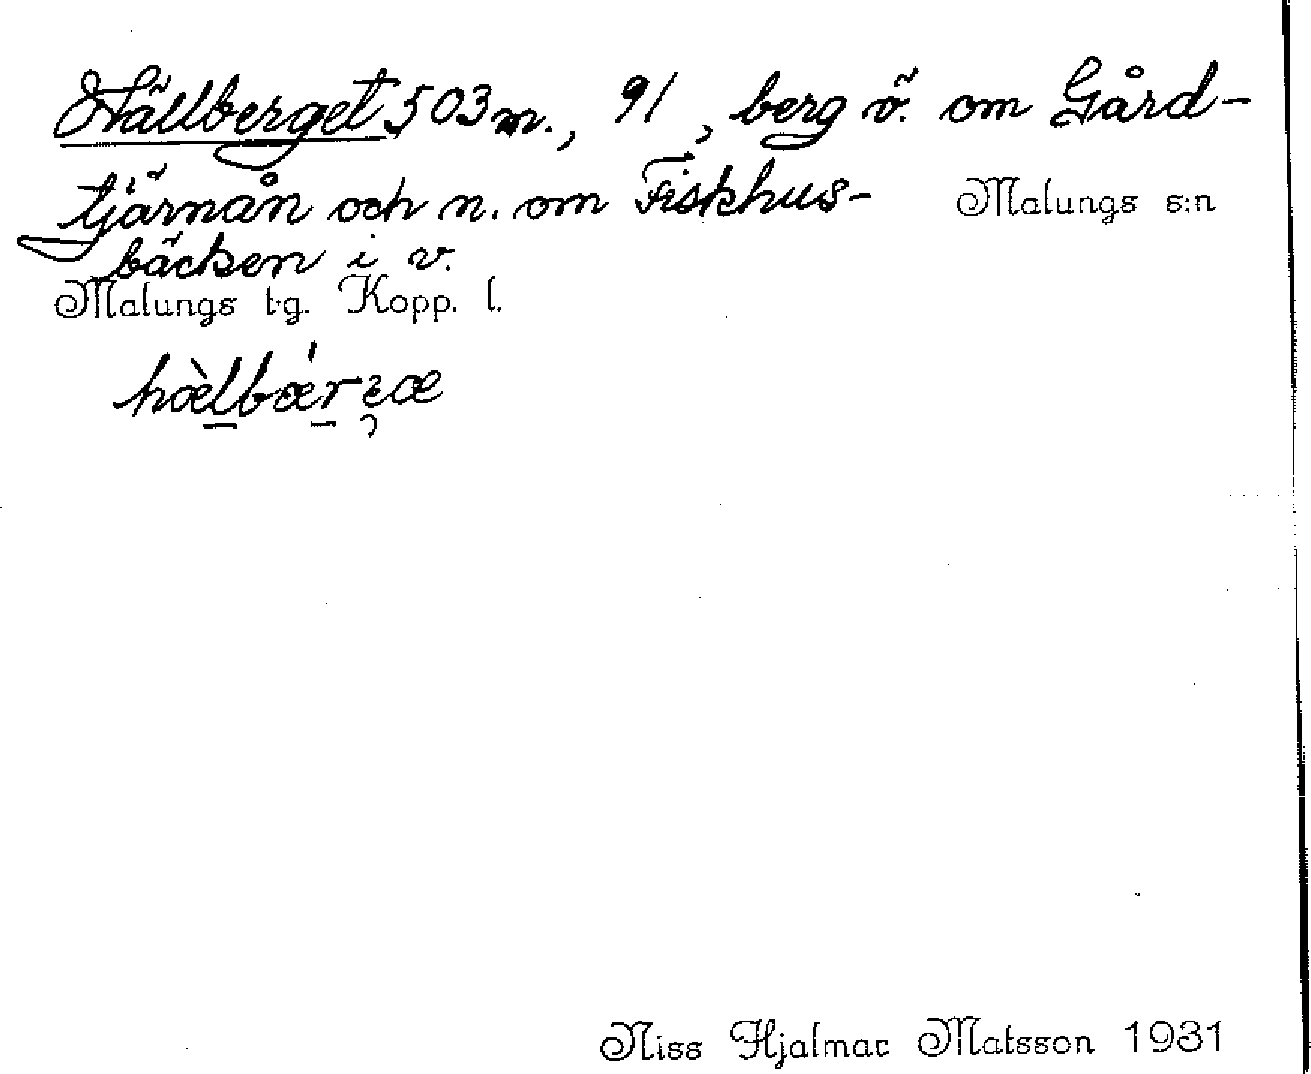 Hällberget 503 m., 91, berg ö. om Gård-
tjärnån och n. om Fiskhus- Malungs s:n
bäcken i v.
Malungs tg. Kopp. l.
hæ̀lbær
Niss Hjalmar Matsson 1931